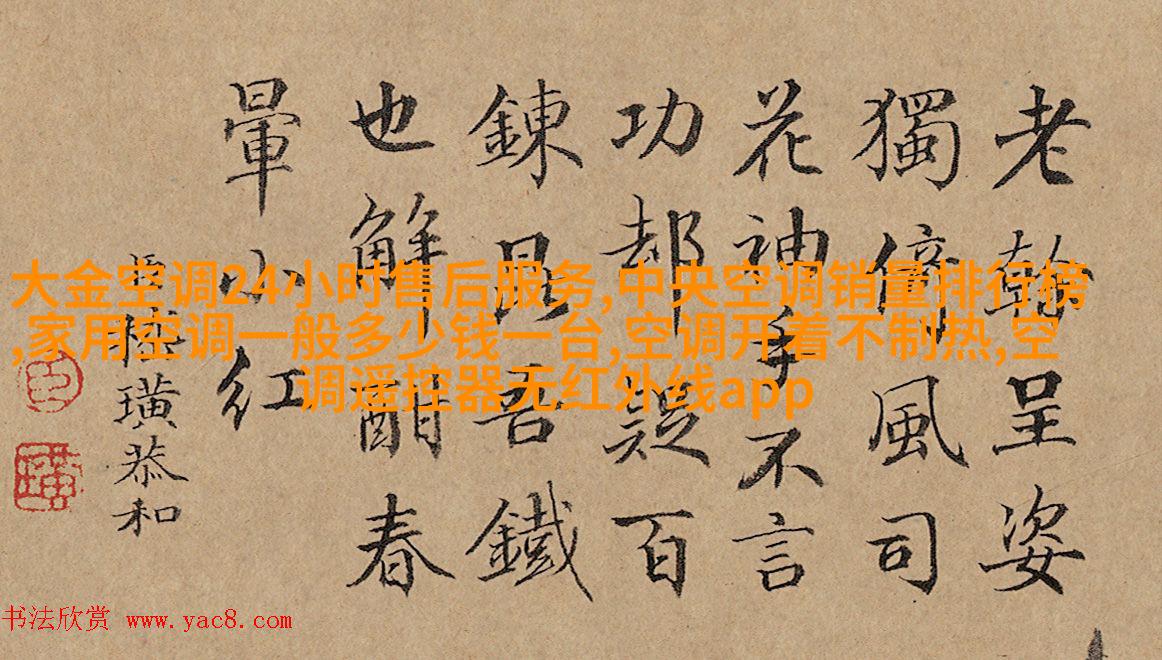 老幹呈姿
獨倚風司
花神手不言
功都疑百
鍊昆吾鐵
也解酣春
暈小紅
臣陸璜恭和
臣
璜
大金空调24小时售后服务,中央空调销量排行榜
,家用空调一般多少钱一台,空调开着不制热,空
调遥控器无红外线app
书法欣赏 www.yac8.com